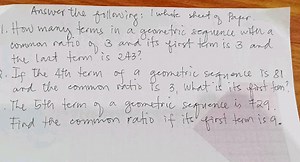 Answer the following: 1 whole sheet of Paper
1. How many terms in a geometric sequence with a
common ratio of 3 and its first term is 3 and
the last term is 243?
2. If the 4th term of a geometric sequence is 81
and the common ratio is 3, what is its first term?
The 5th term of a geometric sequence is 729.
Find the common ratio if its first term is 9.